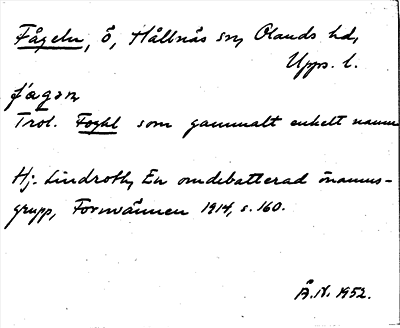 Fågeln, ö, Hållnäs sn, Olands hd,
Upps. l.
fǫgǝn
Trol. Foghl som gammalt enkelt namn
Hj. Lindroth, En omdebatterad önamns-
grupp, Fornvännen 1914, s. 160.
Å.N. 1952.